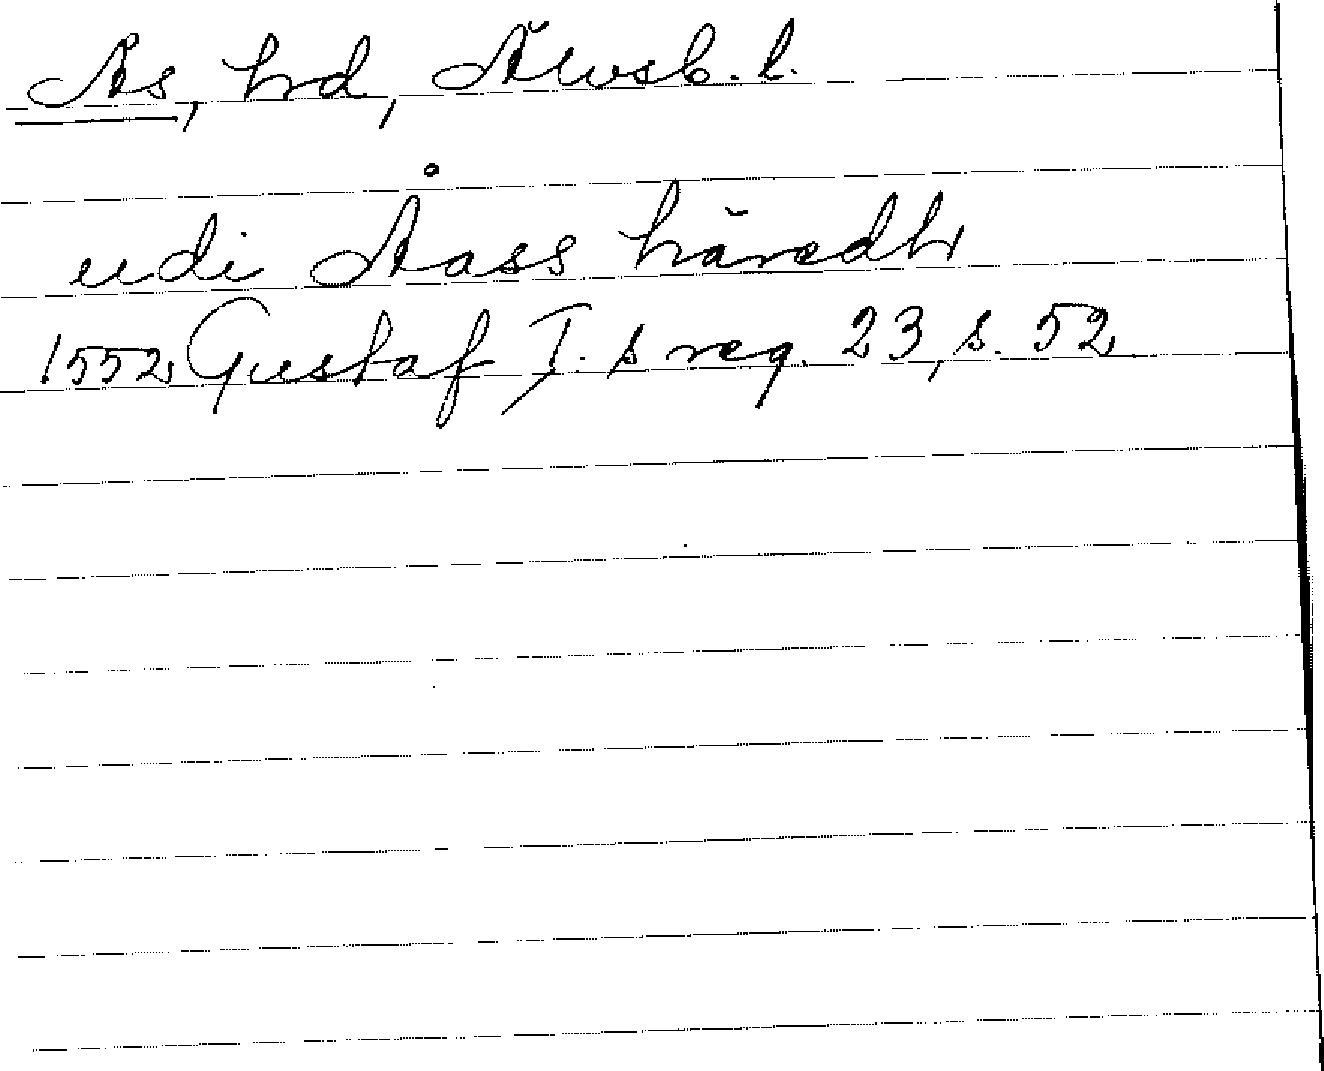 Ås, hd, Älvsb. l.
udi Åass häredh
1552 Gustaf I. s reg. 23, s. 52